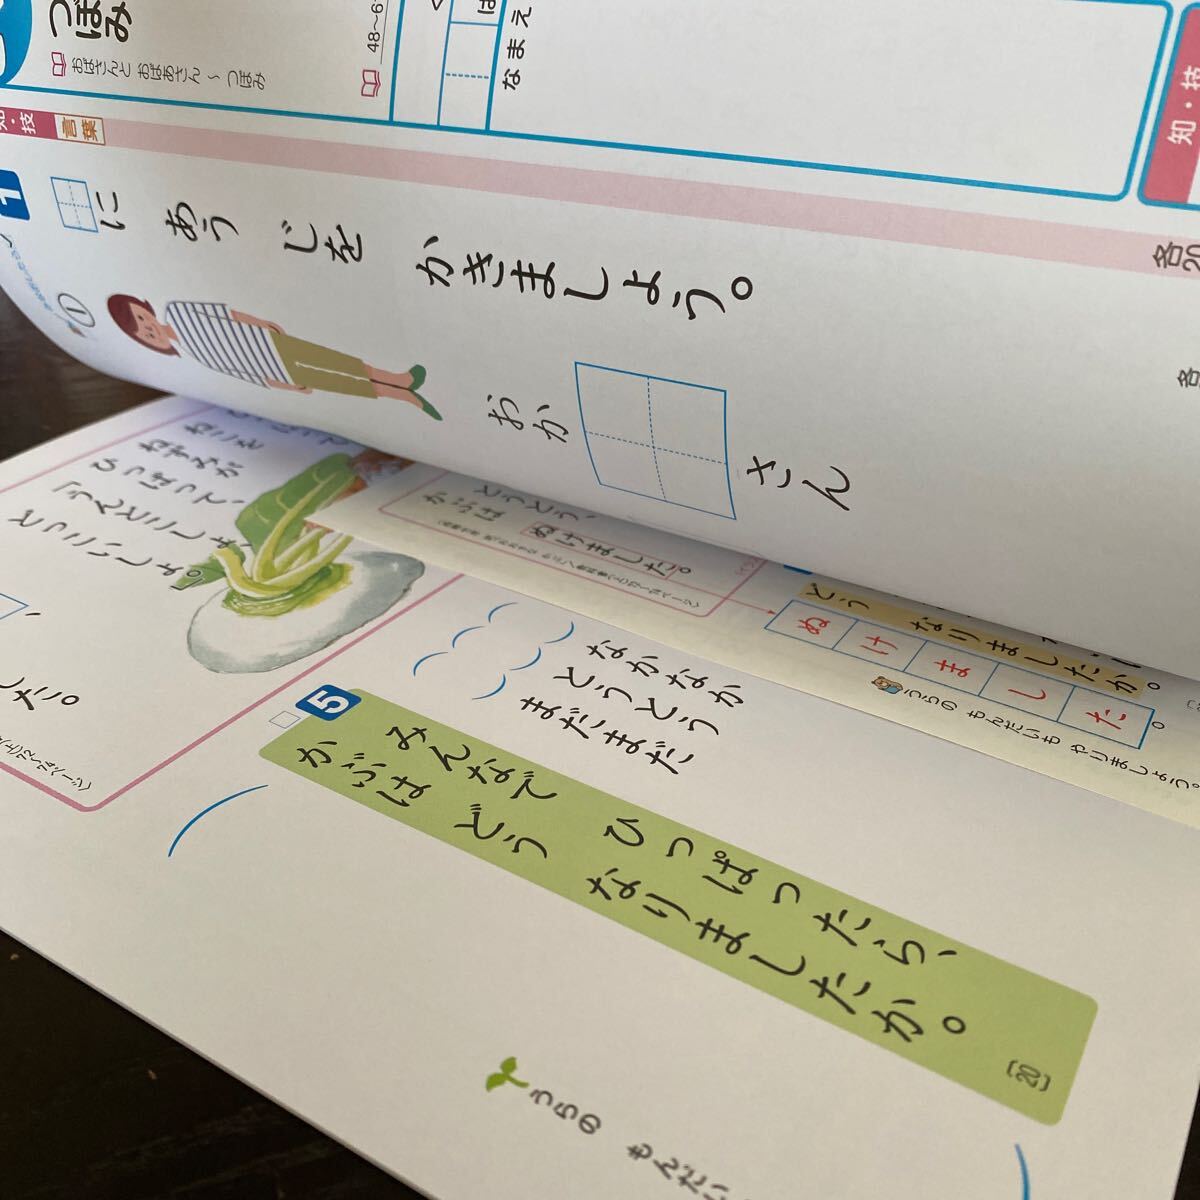 つぼみ
おばさんと おばあさん ～ つぼみ
48～6
なまえ
知・技
知・技
言葉
1
に あう じを かきましょう。
各20
①
おか
さん
ねこを
ねずみが
ひっぱって、
「うんとこしょ、
どっこいしょ。」
た。
とうとう、
かぶは
ぬけました。
どう なりましたか。
ぬけました。
うらの もんだいも やりましょう。
なかなか
とうとう
まだまだ
5
みんなで ひっぱったら、
かぶは どう なりましたか。
[20]
うらの もんだい